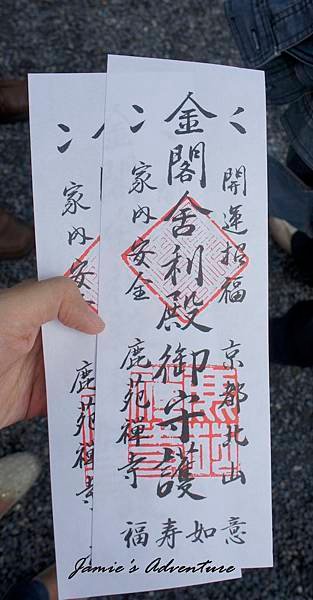 開運招福 京都北山
金閣舍利殿御守護
家内安全 鹿苑禅寺
福寿如意
家内安
鹿苑禅寺
Jamie's Adventure